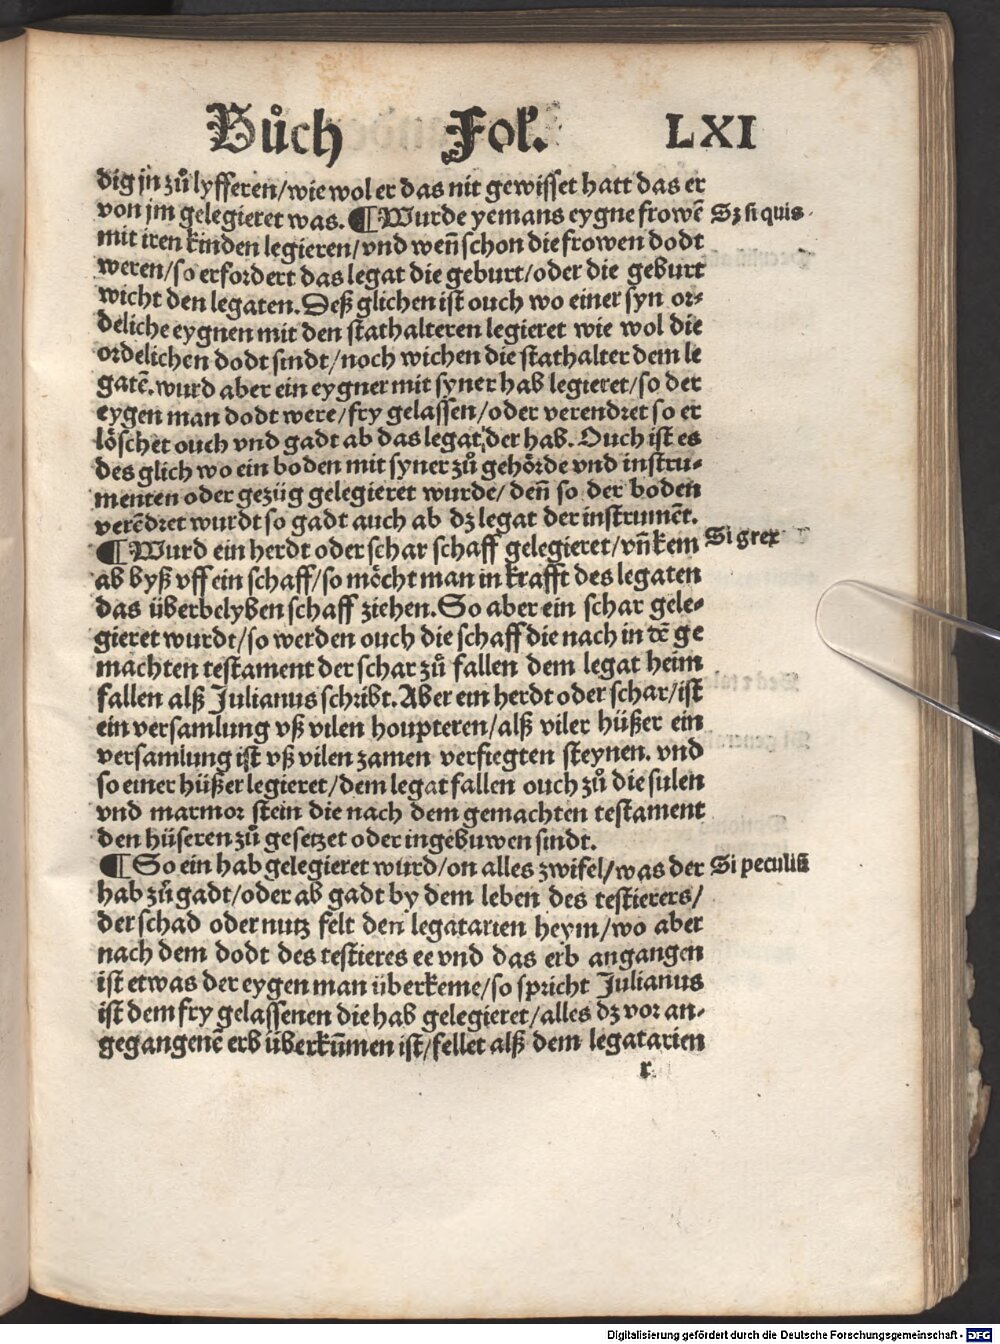 Bůch Fol. LXI
dig jn zů lyfferen/wie wol er das nit gewisset hatt das er
von jm gelegieret was. ¶ Wurde yemans eygne frowē Sz si quis
mit iren kinden legieren/vnd weñ schon die frowen dodt
weren/so erfordert das legat die geburt/oder die geburt
wicht den legaten. Deß glichen ist ouch wo einer syn or-
deliche eygnen mit den stathalteren legieret wie wol die
ordelichen dodt sindt/noch wichen die stathalter dem le
gatē. wurd aber ein eygner mit syner hab legieret/so der
eygen man dodt were/fry gelassen/oder verendret so er
löschet ouch vnd gadt ab das legat der hab. Ouch ist es
des glich wo ein boden mit syner zů gehörde vnd instru-
menten oder gezüg gelegieret wurde/deñ so der boden
verēdret wurdt so gadt auch ab dz legat der instrumēt.
¶ Wurd ein herdt oder schar schaff gelegieret/vñ kem Si grex
ab byß vff ein schaff/so möcht man in krafft des legaten
das überbelyben schaff ziehen. So aber ein schar gele-
gieret wurdt/so werden ouch die schaff die nach in dē ge
machten testament der schar zů fallen dem legat heim
fallen alß Julianus schribt. Aber ein herdt oder schar/ist
ein versamlung vß vilen houpteren/alß viler hüßer ein
versamlung ist vß vilen zamen verfiegten steynen. vnd
so einer hüßer legieret/dem legat fallen ouch zů die sulen
vnd marmor stein die nach dem gemachten testament
den hüseren zů gesetzet oder ingebuwen sindt.
¶ So ein hab gelegieret wurd/on alles zwifel/was der Si peculiū
hab zů gadt/oder ab gadt by dem leben des testierers/
der schad oder nutz felt den legatarien heym/wo aber
nach dem dodt des testieres ee vnd das erb angangen
ist etwas der eygen man überkeme/so spricht Julianus
ist dem fry gelassenen die hab gelegieret/alles dz vor an-
gegangenē erb überkūmen ist/fellet alß dem legatarien
r
Digitalisierung gefördert durch die Deutsche Forschungsgemeinschaft - DFG